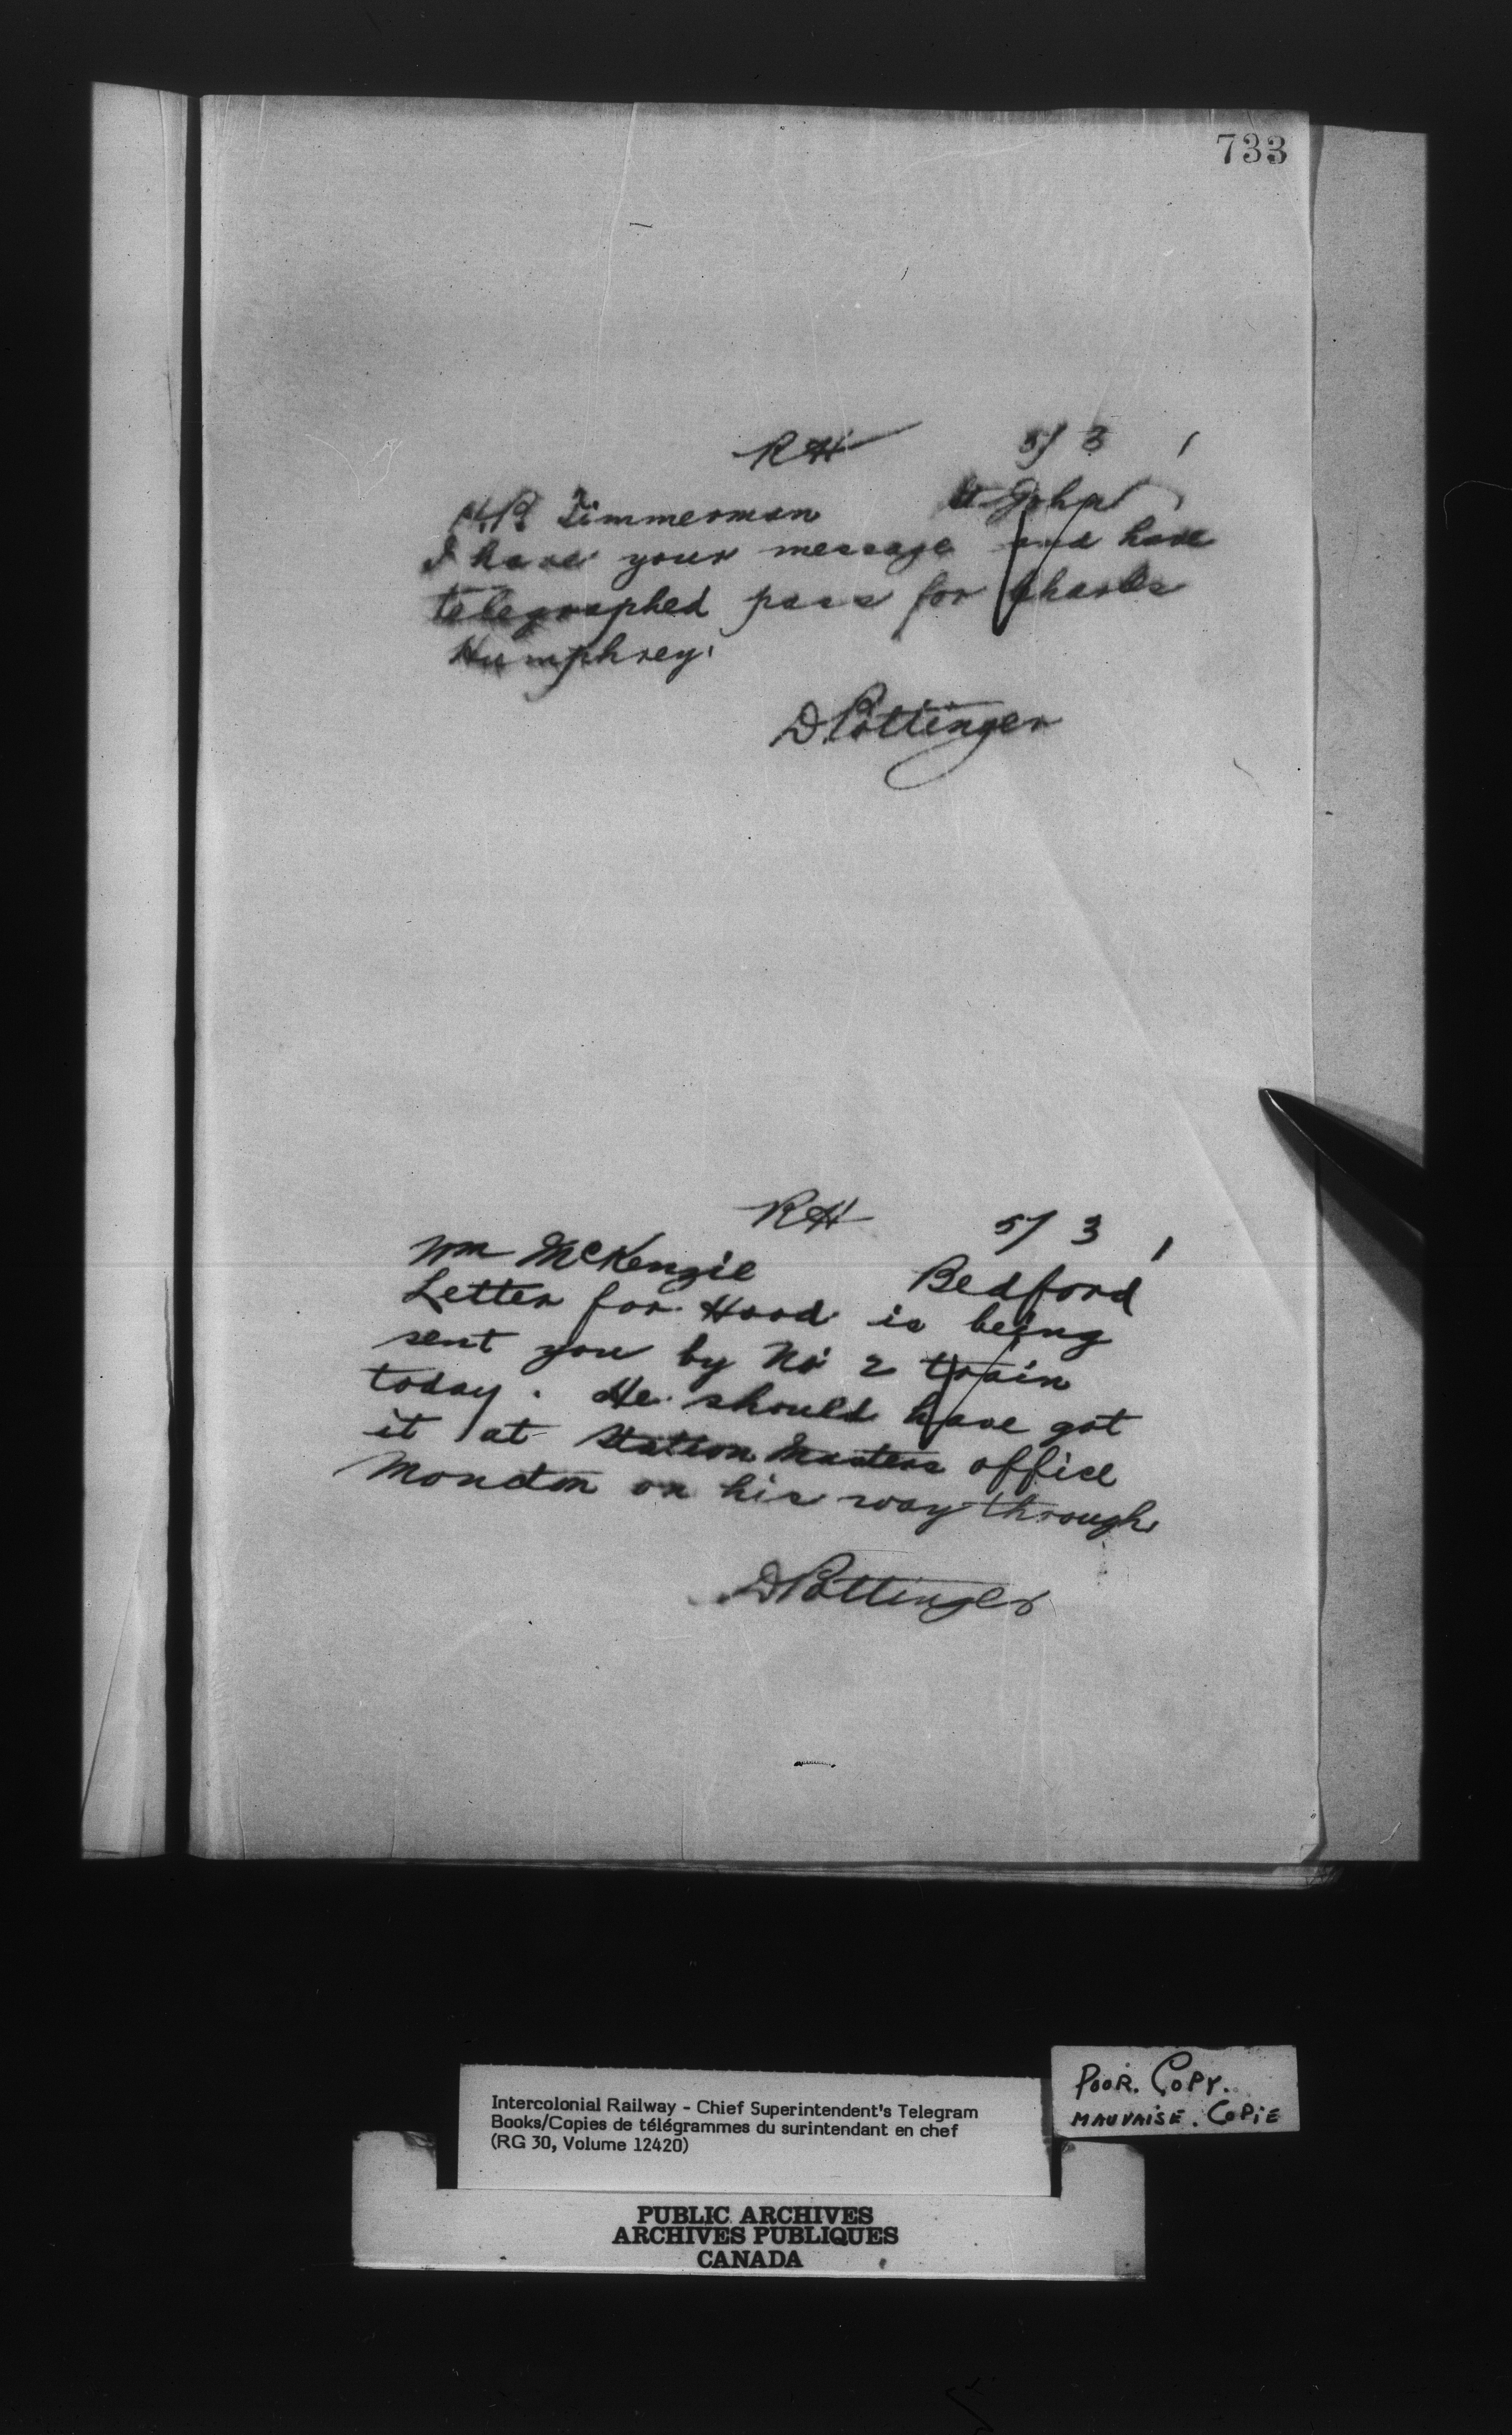 733
RH 5/3
Timmerman St John
I have your message and have
telegraphed pass for Charles
Humphrey.
D Pottinger
RH 5/3
Wm McKenzie Bedford
Letter for Hood is being
sent you by No 2 train
today. He should have got
it at Station Masters office
Moncton on his way through
D Pottinger
Intercolonial Railway - Chief Superintendent's Telegram
Books/Copies de télégrammes du surintendant en chef
(RG 30, Volume 12420)
POOR. COPY.
MAUVAISE. COPIE
PUBLIC ARCHIVES
ARCHIVES PUBLIQUES
CANADA